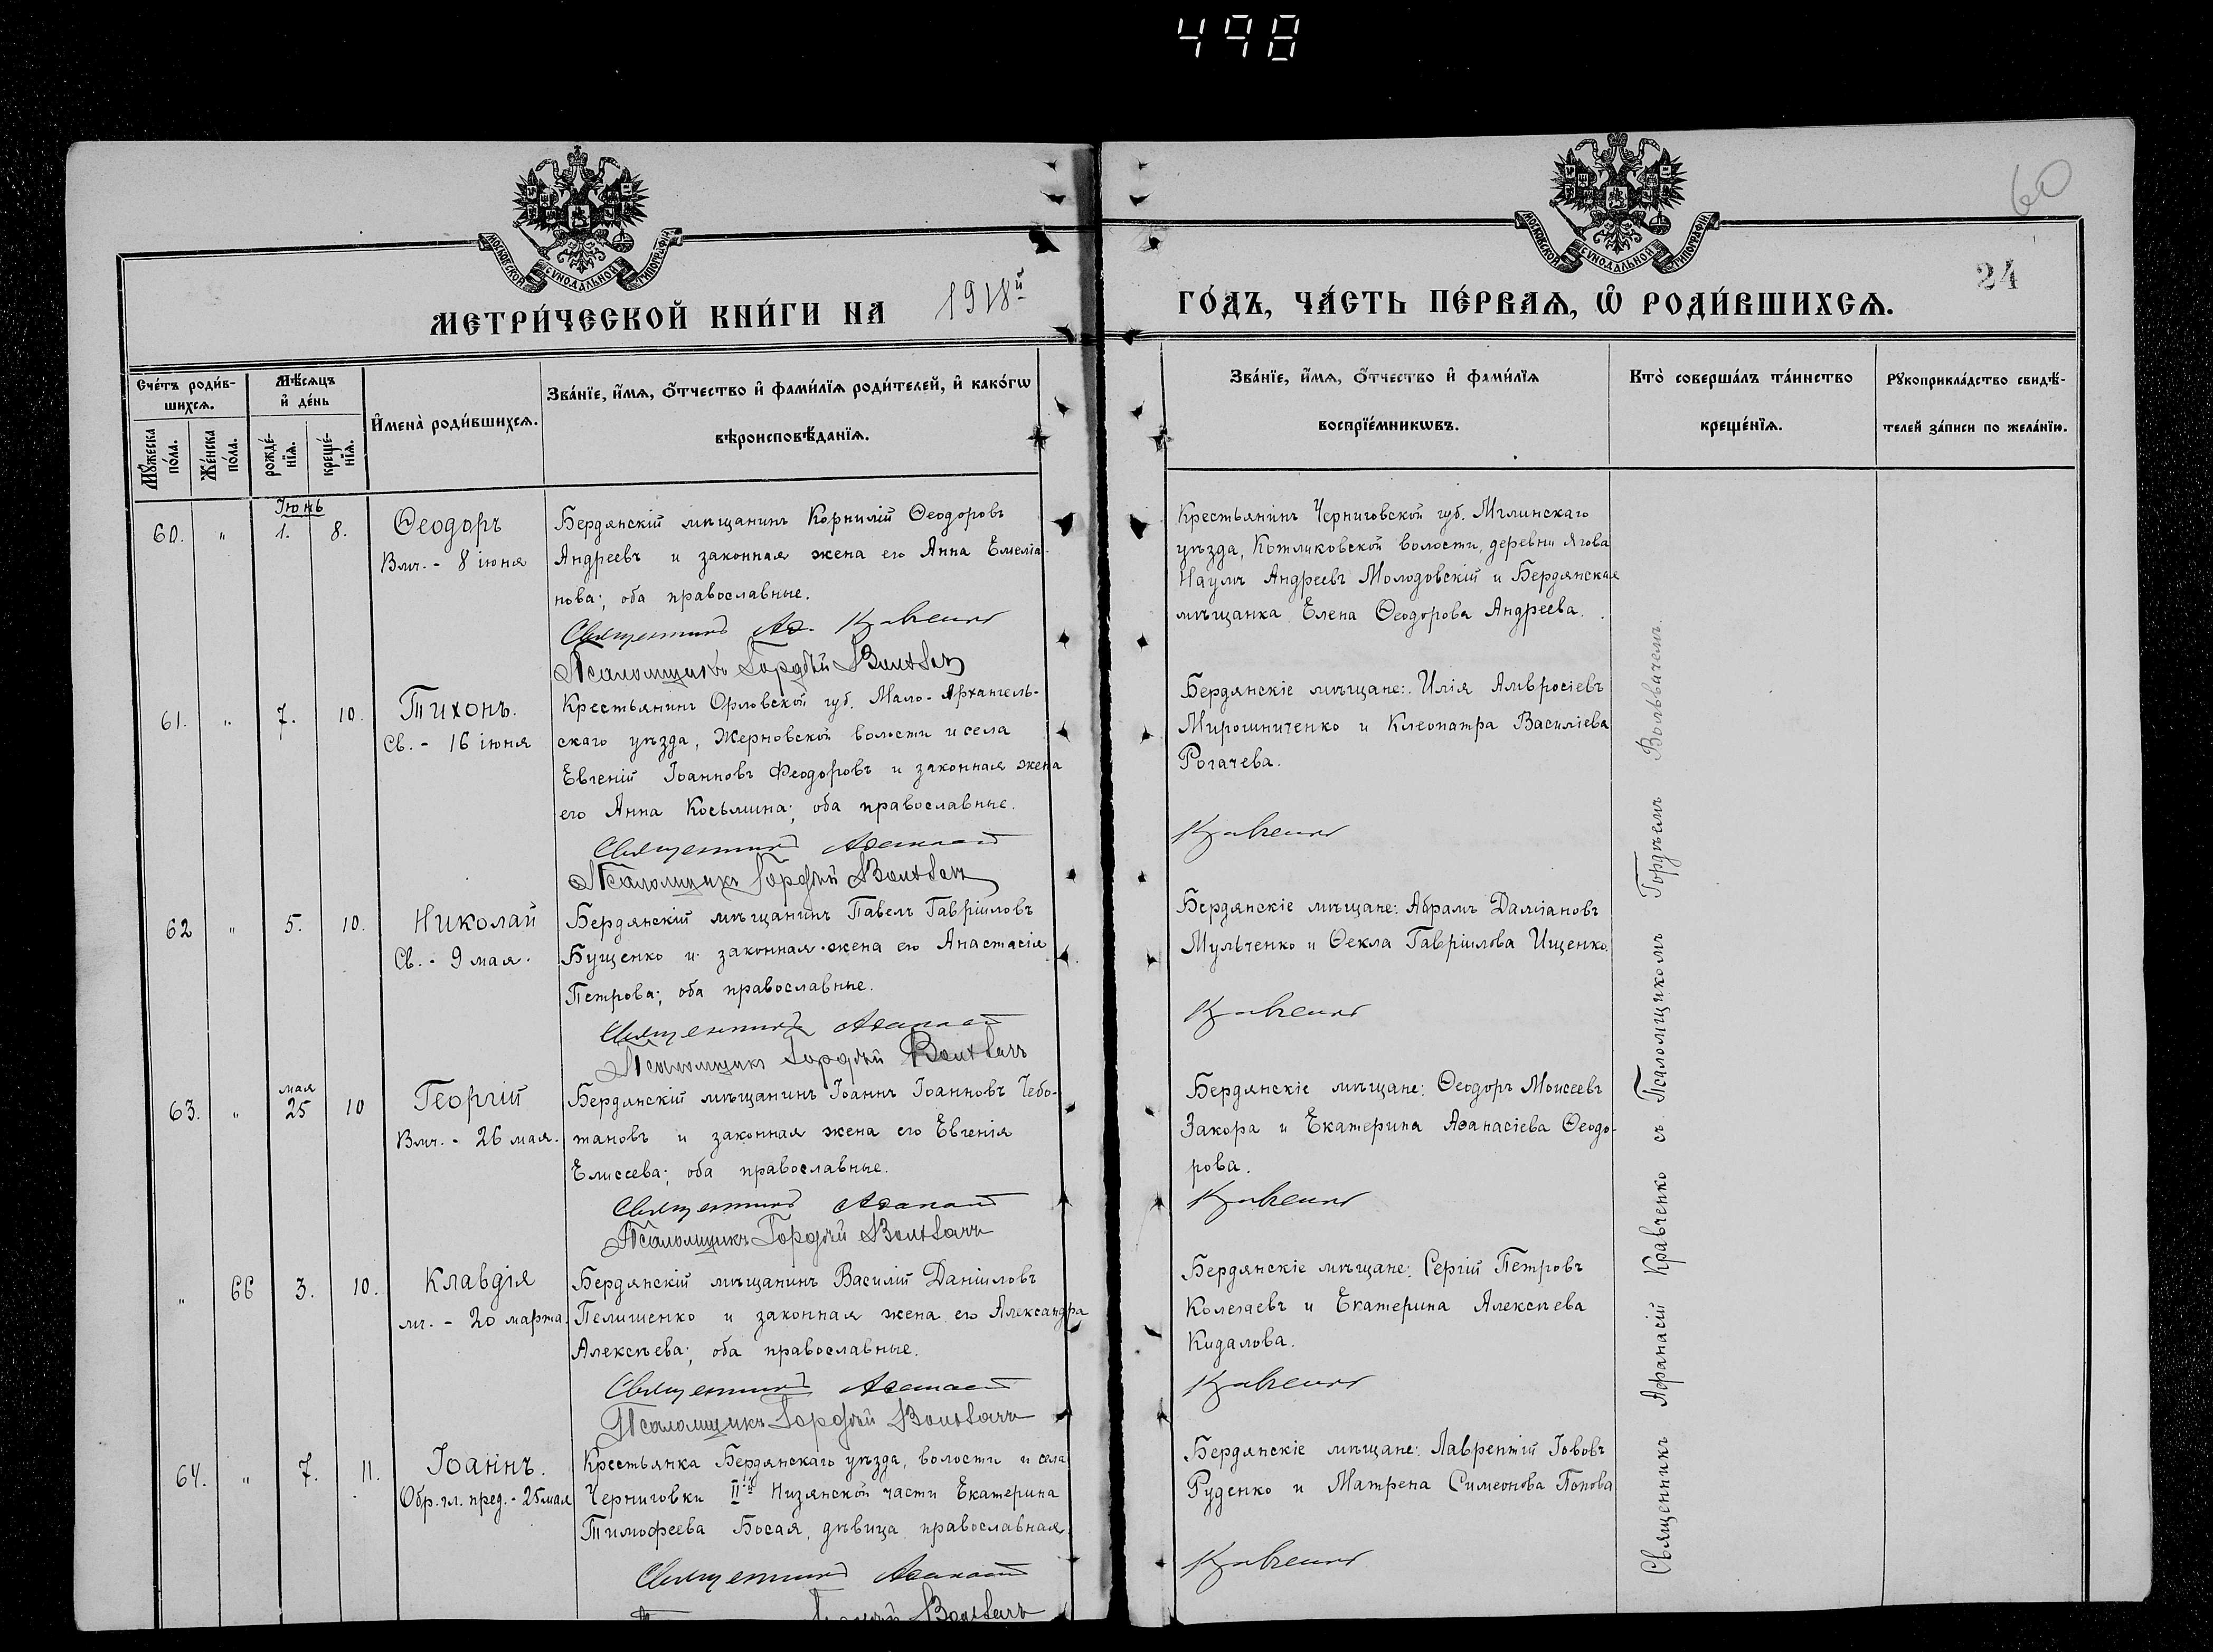 498
60
24
МОСКОВСКОЙ СѴНОДАЛЬНОЙ ТИПОГРАФІИ
МОСКОВСКОЙ СѴНОДАЛЬНОЙ ТИПОГРАФІИ
МЕТРИ́ЧЕСКОЙ КНИ́ГИ НА 1918й
ГО́ДЪ, ЧА́СТЬ ПЕ́РВАѦ, Ѡ҆ РОДИ́ВШИХСѦ.
Сче́тъ роди́в-
шихсѧ.
Мꙋ́жеска по́ла.
Же́нска по́ла.
Мѣ́сѧцъ
и҆ де́нь
рожде́-
нїѧ.
креще́-
нїѧ.
И҆мена̀ роди́вшихсѧ.
Зва́нїе, и҆́мѧ, ѻ҆́тчество и҆ фами́лїѧ роди́телей, и҆ како́гѡ
вѣроисповѣ́данїѧ.
Зва́нїе, и҆́мѧ, ѻ҆́тчество и҆ фами́лїѧ
воспрїе́мникѡвъ.
Кто̀ соверша́лъ та́инство
креще́нїѧ.
Рꙋкоприкла́дство свидѣ́-
телей за́писи по жела́нїю.
Іюнь
60. " 1. 8.
Ѳеодоръ
Вмч. - 8 іюня
Бердянскій мѣщанинъ Корнилій Ѳеодоровъ
Андреевъ и законная жена его Анна Емеліа-
нова; оба православные.
Священникъ Аѳ. Кравченко
Псаломщикъ Гордѣй Вольвачъ
Крестьянинъ Черниговской губ. Мглинскаго
уѣзда, Котляковской волости, деревни Ягова
Наумъ Андреевъ Молодовскій и Бердянская
мѣщанка Елена Ѳеодорова Андреева.
61. " 7. 10.
Тихонъ.
Св. - 16 іюня
Крестьянинъ Орловской губ. Мало-Архангель-
скаго уѣзда, Жерновской волости и села
Евгеній Іоанновъ Феодоровъ и законная жена
его Анна Косьмина; оба православные.
Священникъ Аѳанасій
Псаломщикъ Гордѣй Вольвачъ
Бердянскіе мѣщане: Илія Амвросіевъ
Мирошниченко и Клеопатра Василіева
Рогачева.
Кравченко
62 " 5. 10.
Николай
Св. - 9 мая.
Бердянскій мѣщанинъ Павелъ Гавріиловъ
Бущенко и законная жена его Анастасія
Петрова; оба православные.
Священникъ Аѳанасій
Псаломщикъ Гордѣй Вольвачъ
Бердянскіе мѣщане: Абрамъ Даміановъ
Мульченко и Ѳекла Гавріилова Ищенко.
Кравченко
мая
63. " 25 10
Георгій
Вмч. - 26 мая.
Бердянскій мѣщанинъ Іоаннъ Іоанновъ Чебо-
тановъ и законная жена его Евгенія
Елисеева; оба православные.
Священникъ Аѳанасій
Псаломщикъ Гордѣй Вольвачъ
Бердянскіе мѣщане: Ѳеодоръ Моисеевъ
Закора и Екатерина Аѳанасіева Ѳеодо-
рова.
Кравченко
" 66 3. 10.
Клавдія
мч. - 20 марта.
Бердянскій мѣщанинъ Василій Даніиловъ
Пелишенко и законная жена его Александра
Алексѣева; оба православные.
Священникъ Аѳанасій
Псаломщикъ Гордѣй Вольвачъ
Бердянскіе мѣщане: Сергій Петровъ
Колегаевъ и Екатерина Алексѣева
Кидалова.
Кравченко
64. " 7. 11.
Іоаннъ.
Обр. гл. пред. - 25 мая
Крестьянка Бердянскаго уѣзда, волости и села
Черниговки IIй Низянской части Екатерина
Тимофеева Босая, дѣвица православная.
Священникъ Аѳанасій
Гордѣй Вольвачъ
Бердянскіе мѣщане: Лаврентій Іововъ
Руденко и Матрена Симеонова Попова
Кравченко
Священникъ Афанасій Кравченко съ Псаломщикомъ Гордѣемъ Вольвачемъ.